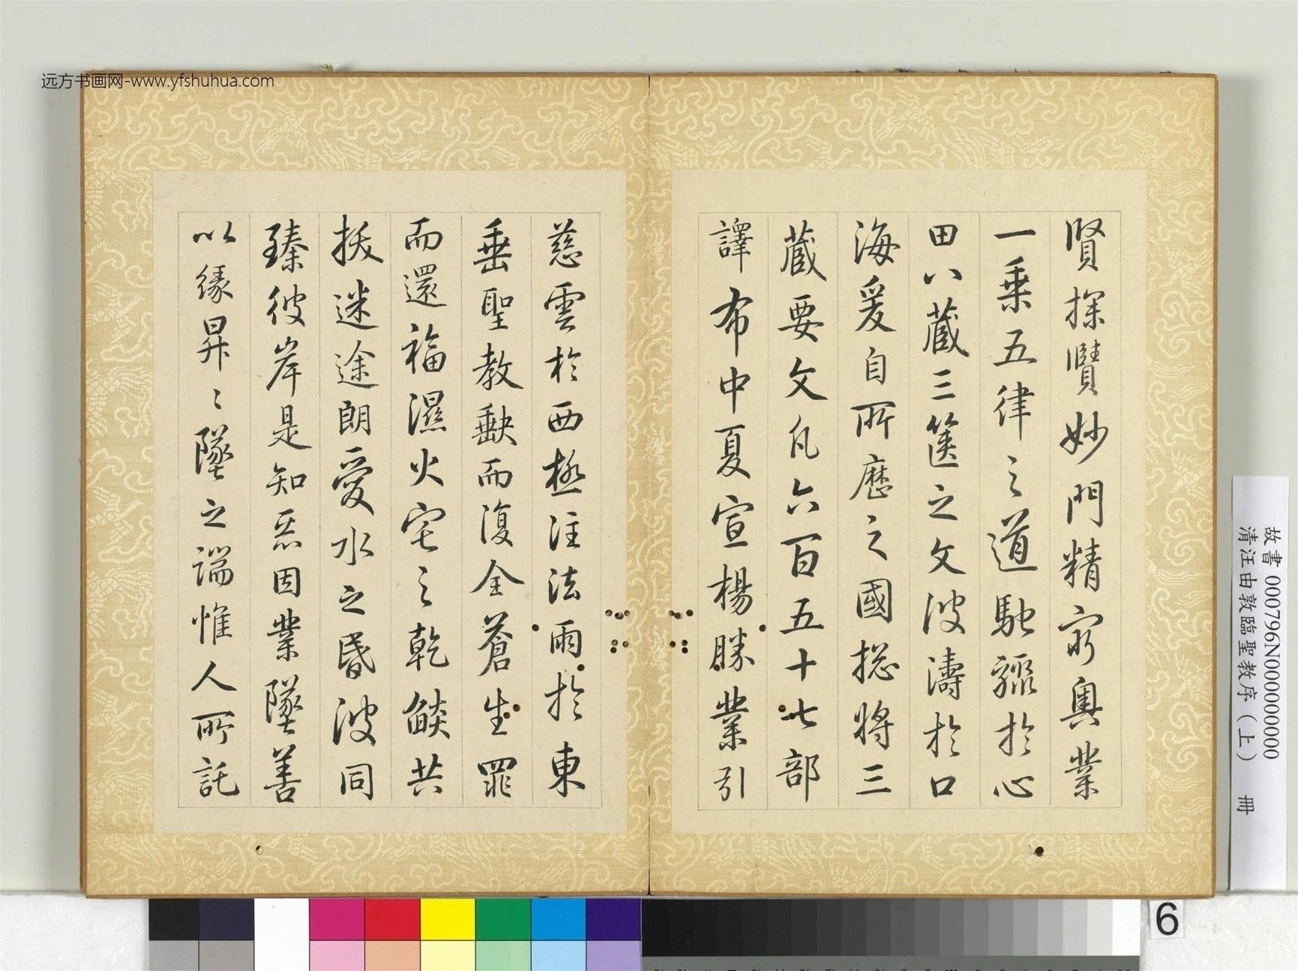 远方书画网-www.yfshuhua.com
賢探賾妙門精窮奧業
一乗五律之道馳驟於心
田八蔵三篋之文波濤於口
海爰自所歷之國総將三
蔵要文凡六百五十七部
譯布中夏宣楊勝業引
慈雲於西極注法雨於東
垂聖教缺而復全蒼生罪
而還福濕火宅之乾燄共
拔迷途朗愛水之昏波同
臻彼岸是知惡因業墜善
以緣昇〻墜之端惟人所託
故書 000796N000000000
清汪由敦臨聖教序（上） 冊
6